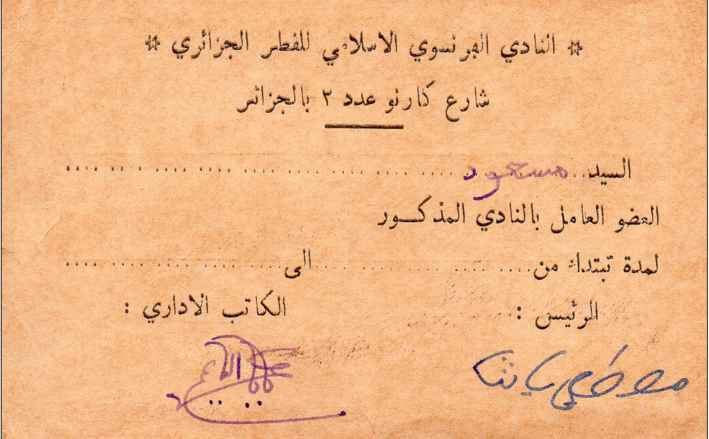 النادي الفرنسوي الاسلامي للقطر الجزائري
شارع كارنو عدد ٢ بالجزائر
السيد مسعود
العضو العامل بالنادي المذكور
لمدة تبتدأ من الى
الرئيس : الكاتب الاداري :
مصطفى باشا